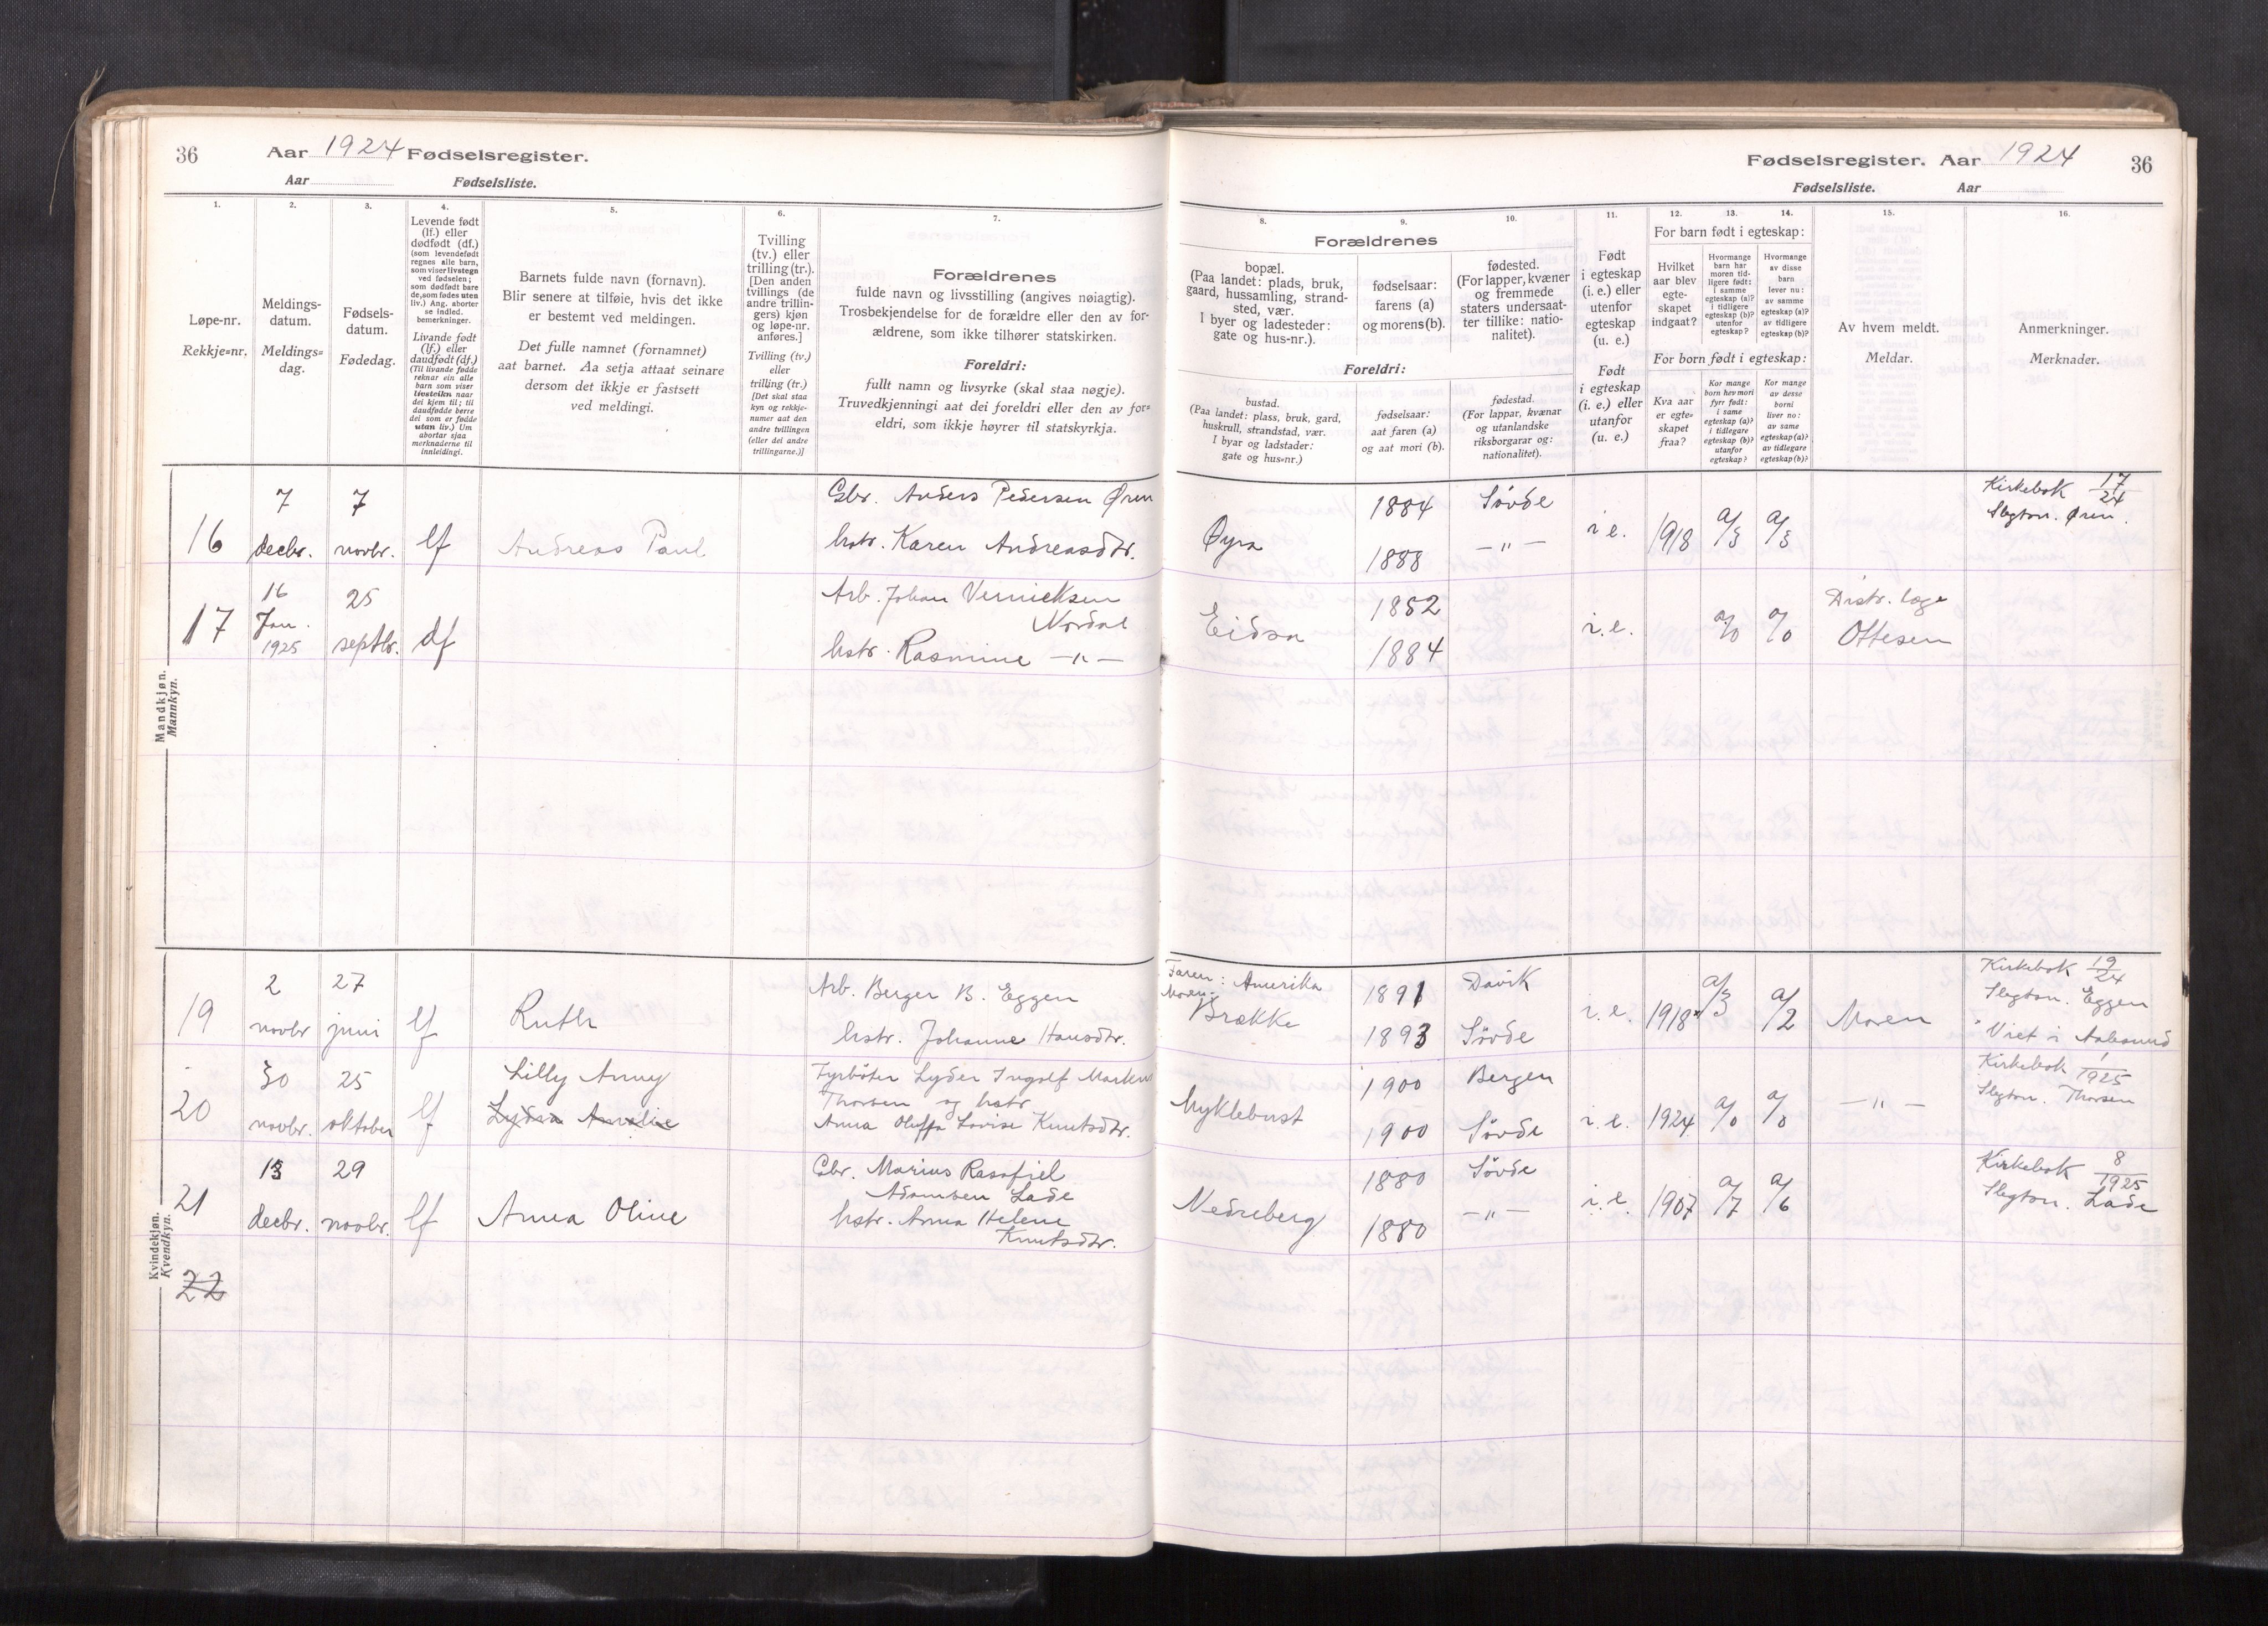 36
Aar 1924 Fødselsregister.
Aar Fødselsliste.
1.
Løpe-nr.
Rekkje=nr.
2.
Meldings-
datum.
Meldings=
dag.
3.
Fødsels-
datum.
Fødedag.
4.
Levende født
(lf.) eller
dødfødt (df.)
(som levendefødt
regnes alle barn,
som viser livstegn
ved fødselen;
som dødfødt bare
de, som fødes uten
liv.) Ang. aborter
se indled.
bemerkninger.
Livande født
(lf.) eller
daudfødt (df.)
(Til livande fødde
reknar ein alle
barn som viser
livsteikn naar
dei kjem til; til
daudfødde berre
dei som er fødde
utan liv.) Um
abortar sjaa
merknaderne til
innleidingi.
5.
Barnets fulde navn (fornavn).
Blir senere at tilføie, hvis det ikke
er bestemt ved meldingen.
Det fulle namnet (fornamnet)
aat barnet. Aa setja attaat seinare
dersom det ikkje er fastsett
ved meldingi.
6.
Tvilling
(tv.) eller
trilling (tr.).
[Den anden
tvillings (de
andre trillin-
gers) kjøn
og løpe-nr.
anføres.]
Tvilling (tv.)
eller
trilling (tr.)
[Det skal staa
kyn og rekkje-
numer aat den
andre tvillingen
(eller dei andre
trillingarne.)]
7.
Forældrenes
fulde navn og livsstilling (angives nøiagtig).
Trosbekjendelse for de forældre eller den av for-
ældrene, som ikke tilhører statskirken.
Foreldri:
fullt namn og livsyrke (skal staa nøgje).
Truvedkjenningi aat dei foreldri eller den av for=
eldri, som ikkje høyrer til statskyrkja.
Mandkjøn.
Mannkyn.
16
7
decbr.
7
novbr.
lf
Andreas Paul
Gbr. Anders Pedersen Øren
hstr. Karen Andreasdtr.
17
16
Jan.
1925
25
septbr.
df
Arb. Johan Vernicksen
Nordal
hstr. Rasmine —"—
Kvindekjøn.
Kvendkyn.
19
2
novbr
27
juni
lf
Ruth
Arb. Berger B. Eggen
hstr. Johanne Hansdtr.
20
30
novbr.
25
oktober
lf
Lilly Anny
Lydia Amalie
Fyrbøter Lyder Ingolf Markus
Thorsen og hstr
Anna Oluffa Lovise Knutsdtr.
21
13
decbr.
29
novbr.
lf
Anna Oline
Gbr. Marius Rasofiel
Adamsen Lade
hstr. Anna Helene
Knutsdtr.
22
Fødselsregister. Aar 1924
Fødselsliste. Aar
36
8.
Forældrenes
bopæl.
(Paa landet: plads, bruk,
gaard, hussamling, strand-
sted, vær.
I byer og ladesteder:
gate og hus-nr.).
9.
fødselsaar:
farens (a)
og morens (b).
10.
fødested.
(For lapper, kvæner
og fremmede
staters undersaat-
ter tillike: natio-
nalitet).
Foreldri:
bustad.
(Paa landet: plass, bruk, gard,
huskrull, strandstad, vær.
I byar og ladstader:
gate og hus=nr.)
fødselsaar:
aat faren (a)
og aat mori (b).
fødestad.
(For lappar, kvænar
og utanlandske
riksborgarar og:
nationalitet).
11.
Født
i egteskap
(i. e.) eller
utenfor
egteskap
(u. e.)
Født
i egteskap
(i. e.) eller
utanfor
(u. e.)
12. 13. 14.
For barn født i egteskap:
Hvilket
aar blev
egte-
skapet
indgaat?
Hvormange
barn har
moren tid-
ligere født:
i samme
egteskap (a)?
i tidligere
egteskap (b)?
utenfor
egteskap?
Hvormange
av disse
barn
lever nu:
av samme
egteskap (a)?
av tidligere
egteskap (b)?
For born født i egteskap:
Kva aar
er egte=
skapet
fraa?
Kor mange
born hev mori
fyrr født:
i same
egteskap (a)?
i tidlegare
egteskap (b)?
utanfor
egteskap?
Kor mange
av desse
borni
liver no:
av same
egteskap (a)?
av tidlegare
egteskap (b)?
15.
Av hvem meldt.
Meldar.
16.
Anmerkninger.
Merknader.
Øyra
1884
1888
Søvde
—"—
i e.
1918
a/3
a/3
Kirkebok 17/24
Slegtsn. Øren.
Eidsa
1882
1884
i. e.
a/0
a/0
Distr. læge
Ottesen
Faren: Amerika
Moren:
Brække
1891
1893
Davik
Søvde
i. e.
1918*
a/3
a/2
Moren
Kirkebok 19/24
Slegtsn. Eggen
* Viet i Aalesund
Myklebust
1900
1900
Bergen
Søvde
i. e.
1924
a/0
a/0
—"—
Kirkebok 1/1925
Slegtsn. Thorsen
Nedreberg
1880
1880
Søvde
—"—
i. e.
1907
a/7
a/6
Kirkebok 8/1925
Slegtsn. Lade